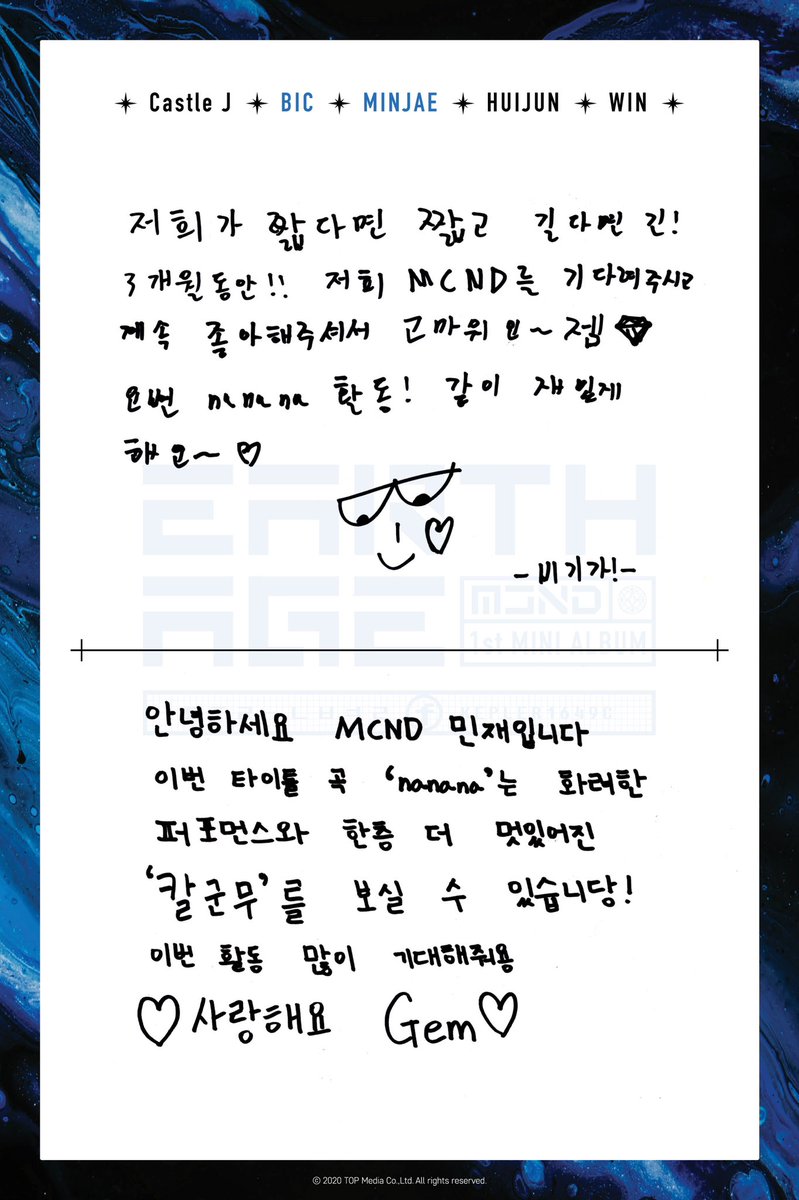 Castle J BIC MINJAE HUIJUN WIN
저희가 짧다면 짧고 길다면 긴!
3개월동안!! 저희 MCND를 기다려주시고
계속 좋아해주셔서 고마워요~ 젬
요번 nanana 활동! 같이 재밌게
해요~♡
EARTH
AGE
- 비기가! -
MCND
1st MINI ALBUM
KEPLER1649C
안녕하세요 MCND 민재입니다
이번 타이틀 곡 ‘nanana’는 화려한
퍼포먼스와 한층 더 멋있어진
‘칼군무’를 보실 수 있습니당!
이번 활동 많이 기대해줘용
♡사랑해요 Gem♡
© 2020 TOP Media Co.,Ltd. All rights reserved.